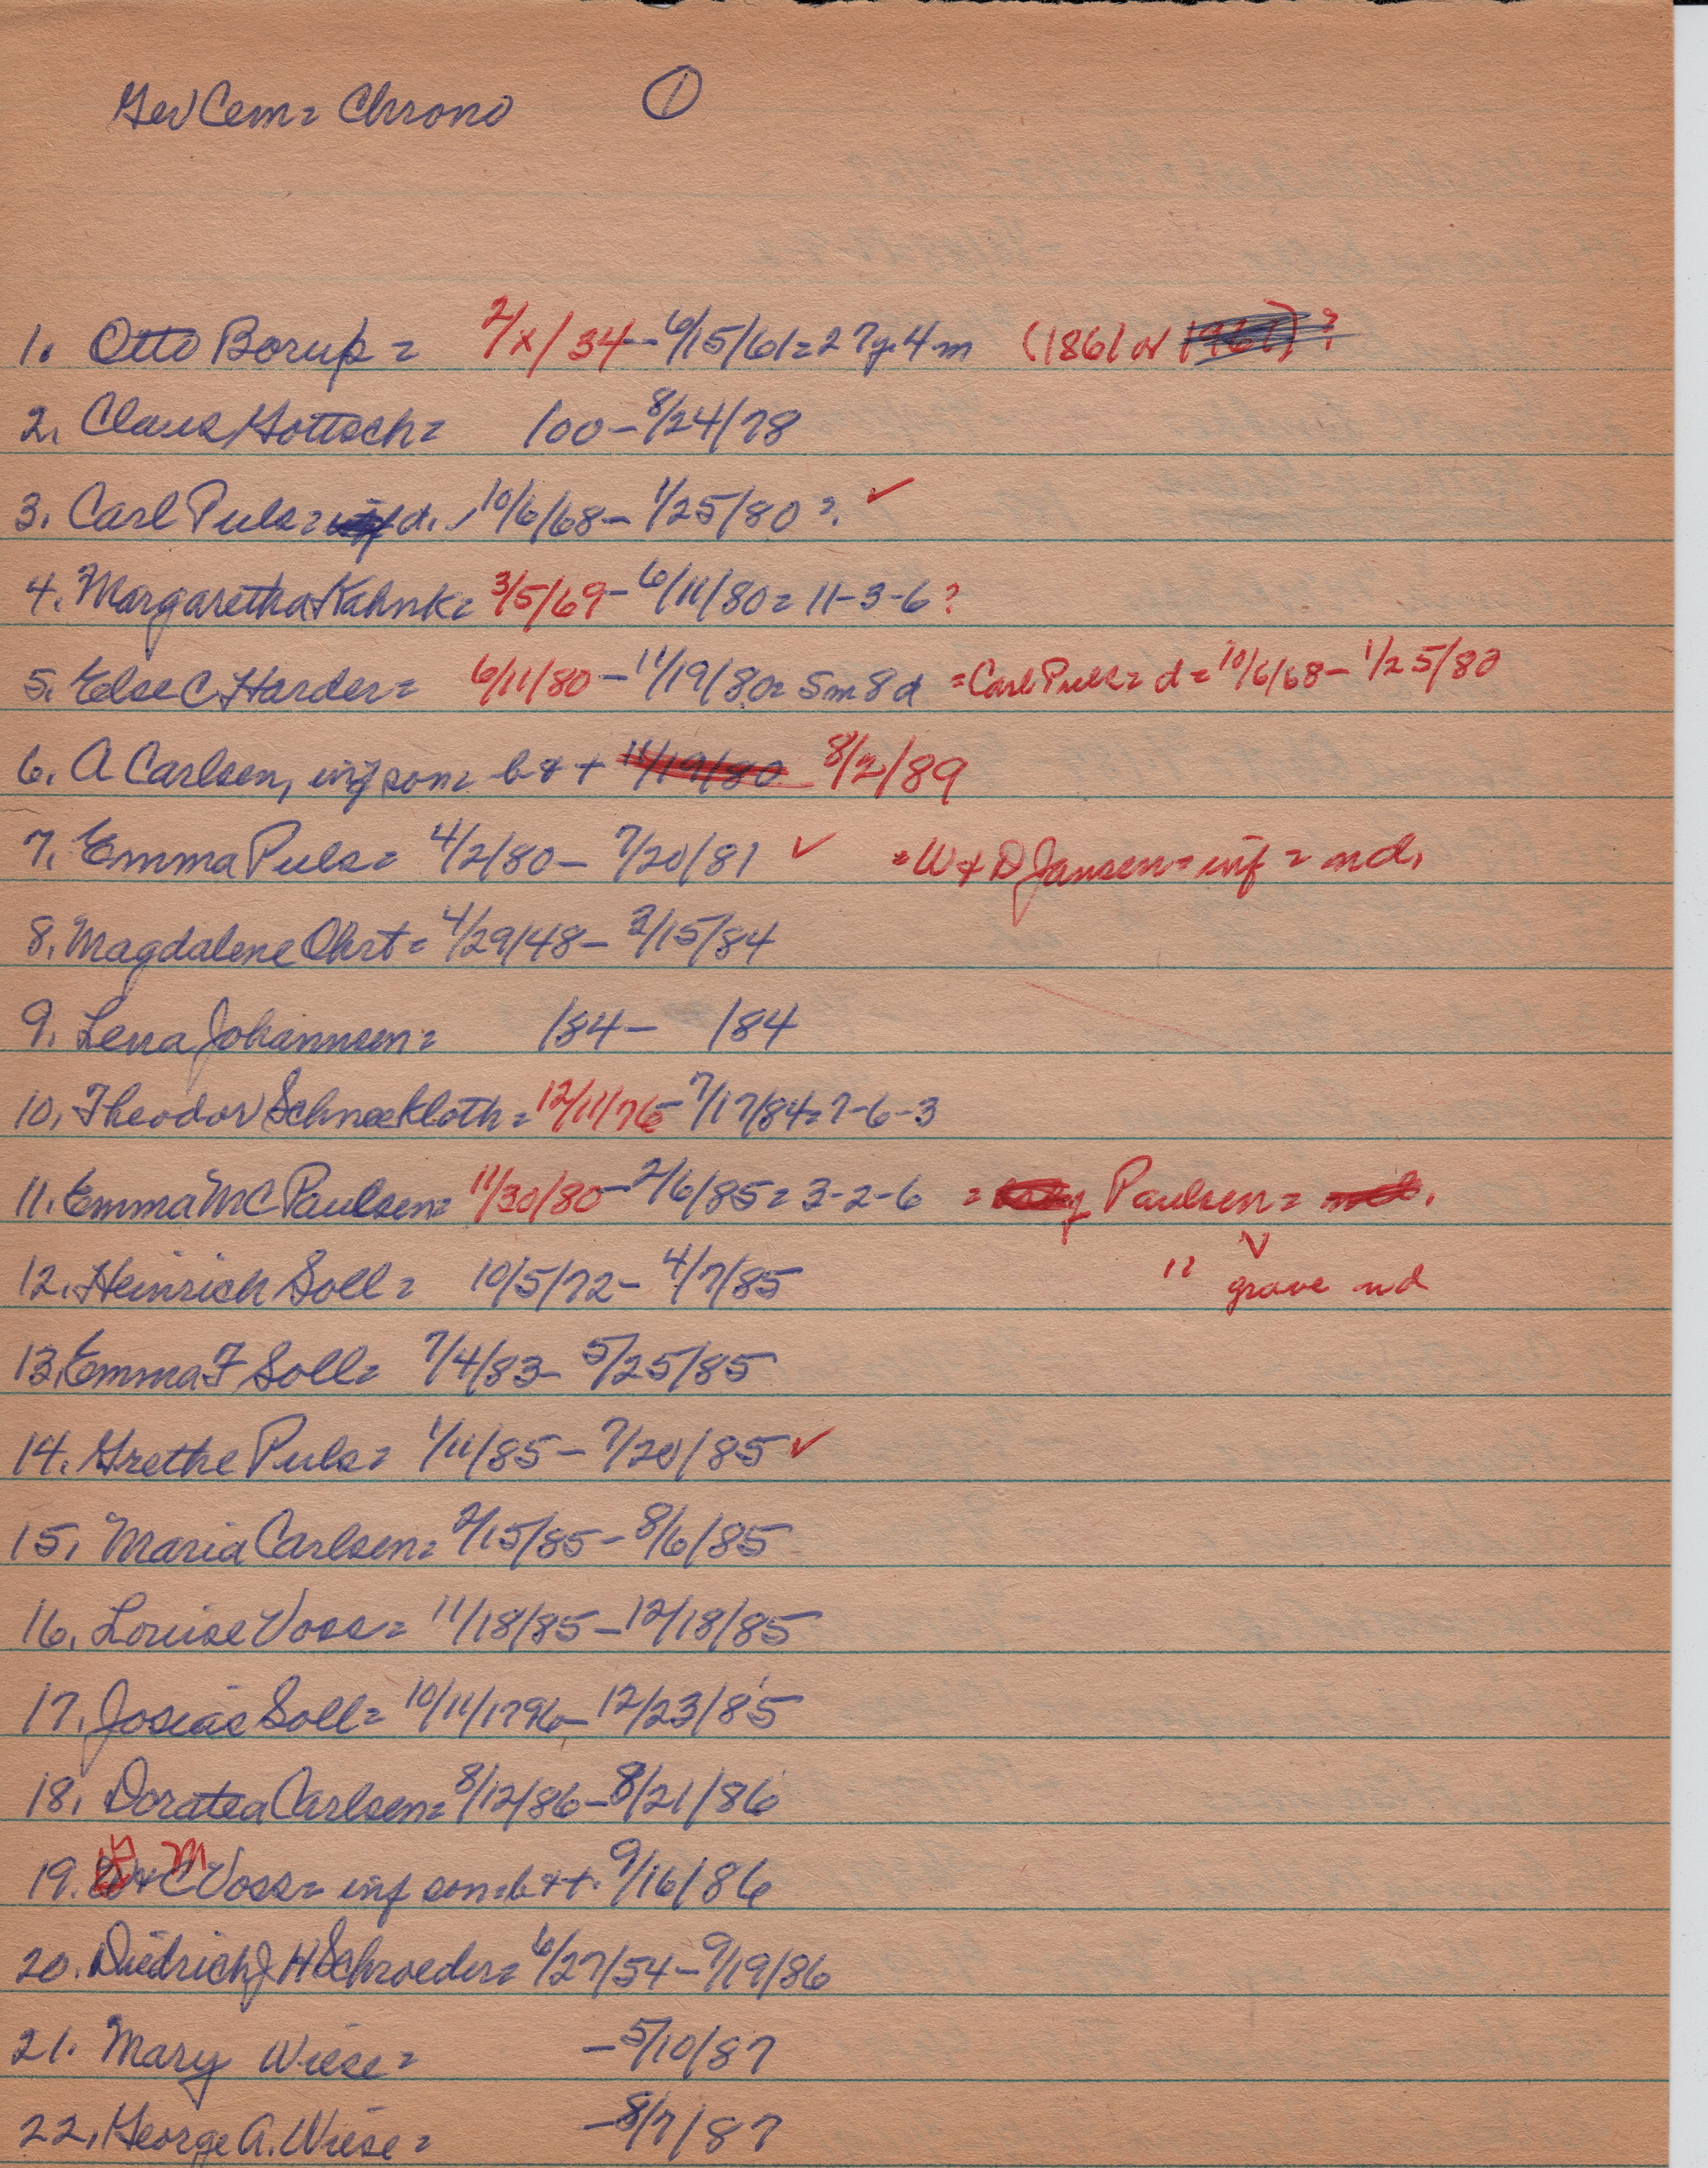 Ger Cem = Chrono 1
1. Otto Borup = 2/x/34 - 6/15/61 = 27y. 4m (1861 or 1961)?
2. Claus Gottsch = /00 - 8/24/78
3. Carl Puls = inf d. 10/6/68 - 1/25/80?. ✓
4. Margaretha Kahnk = 3/5/69 - 6/11/80 = 11-3-6?
5. Else C Harder = 6/11/80 - 11/19/80 = 5m 8d = Carl Puls = d = 10/6/68 - 1/25/80
6. A Carlsen, inf son = b & + 11/19/80 8/2/89
7. Emma Puls = 4/2/80 - 7/20/81 ✓ = W & D Jansen = inf = nd.
8. Magdalene Ohrt = 4/29/48 - 2/15/84
9. Lena Johannsen = /84 - /84
10. Theodor Schneekloth = 12/11/76 - 7/17/84 = 7-6-3
11. Emma MC Paulsen = 11/30/80 - 2/6/85 = 3-2-6 = Paulsen = nd.
12. Heinrich Soll = 10/5/72 - 4/7/85 " grave nd
13. Emma F Soll = 7/4/83 - 5/25/85
14. Grethe Puls = 1/11/85 - 7/20/85 ✓
15. Maria Carlsen = 2/15/85 - 8/6/85
16. Louise Voss = 11/18/85 - 12/18/85
17. Josias Soll = 10/11/1796 - 12/23/85
18. Doratea Carlsen = 8/12/86 - 8/21/86
19. & M Voss = inf son = b & +. 9/16/86
20. Diedrich J H Schroeder = 6/27/54 - 9/19/86
21. Mary Wiese = - 5/10/87
22. George A. Wiese = - 8/7/87